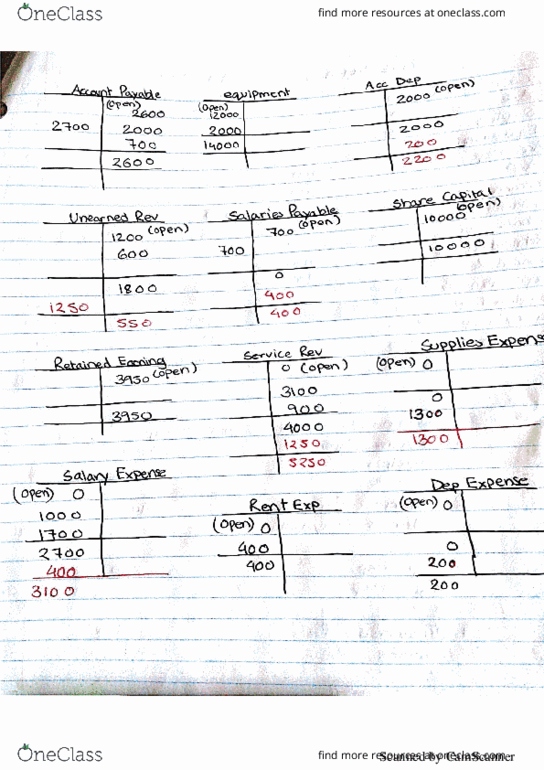 OneClass
find more resources at oneclass.com
Account Payable
(open) 2600
2700 2000
700
2600
equipment
(open) 12000
2000
14000
Acc Dep
2000 (open)
2000
200
2200
Unearned Rev
1200 (open)
600
1800
1250
550
Salaries Payable
700 (open)
700
0
400
400
Share Capital
10000 (open)
10000
Retained Earning
3950 (open)
3950
Service Rev
0 (open)
3100
900
4000
1250
5250
Supplies Expense
(open) 0
0
1300
1300
Salary Expense
(open) 0
1000
1700
2700
400
3100
Rent Exp
(open) 0
400
400
Dep Expense
(open) 0
0
200
200
OneClass
find more resources at oneclass.com
Scanned by CamScanner